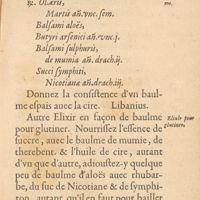 ℞. Olaris,
Martis an. vnc. sem.
Balsami aloës,
Butyri arsenici an. vnc. j.
Balsami sulphuris,
de mumia an. drach. iij.
Succi symphiti,
Nicotianæ an. drach. ij.
Donnez la consistence d'vn baul-
me espais auec la cire. Libanius.
Autre Elixir en façon de baulme
pour glutiner. Nourrissez l'essence de
succre, auec le baulme de mumie, de
therebent. & l'huile de cire, autant
d'vn que d'autre, adioustez-y quelque
peu de baulme d'aloës auec rhubar-
be, du suc de Nicotiane & de symphi-
ton, autant, qu'il en faut pour bailler
Elixir pour
glutiner.